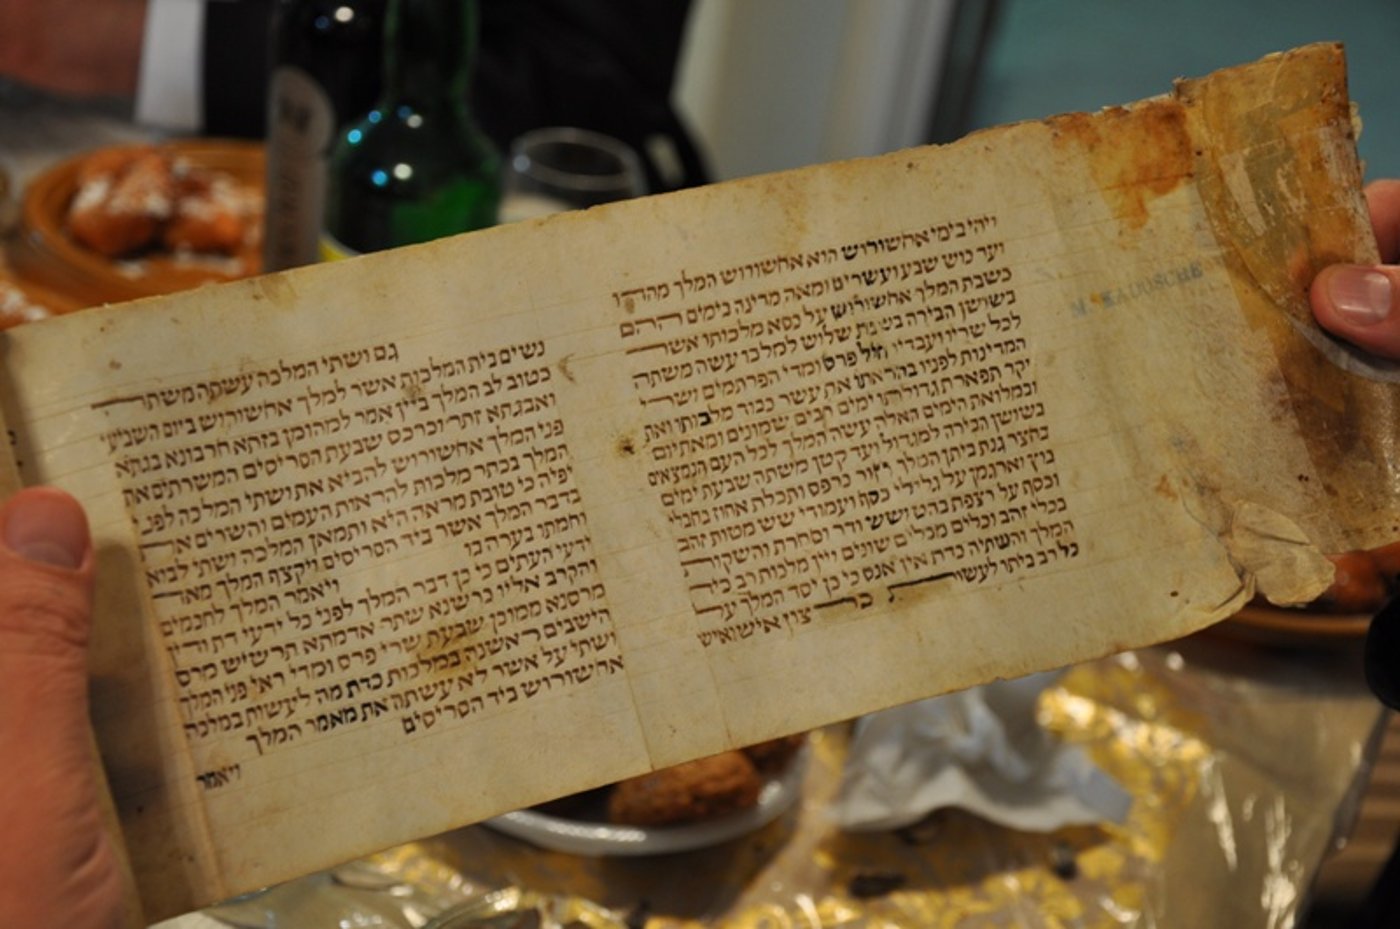 ויהי בימי אחשורוש הוא אחשורוש המלך מהדו
ועד כוש שבע ועשרים ומאה מדינה בימים ההם
כשבת המלך אחשורוש על כסא מלכותו אשר
בשושן הבירה בשנת שלוש למלכו עשה משתה
לכל שריו ועבדיו חיל פרס ומדי הפרתמים ושרי
המדינות לפניו בהראתו את עשר כבוד מלכותו ואת
יקר תפארת גדולתו ימים רבים שמונים ומאת יום
ובמלואת הימים האלה עשה המלך לכל העם הנמצאים
בשושן הבירה למגדול ועד קטן משתה שבעת ימים
בחצר גנת ביתן המלך חור כרפס ותכלת אחוז בחבלי
בוץ וארגמן על גלילי כסף ועמודי שש מטות זהב
וכסף על רצפת בהט ושש ודר וסחרת והשקות
בכלי זהב וכלים מכלים שונים ויין מלכות רב כיד
המלך והשתיה כדת אין אנס כי כן יסד המלך על
כל רב ביתו לעשות כרצון איש ואיש
גם ושתי המלכה עשתה משתה
נשים בית המלכות אשר למלך אחשורוש ביום השביעי
כטוב לב המלך ביין אמר למהומן בזתא חרבונא בגתא
ואבגתא זתר וכרכס שבעת הסריסים המשרתים את
פני המלך אחשורוש להביא את ושתי המלכה לפני
המלך בכתר מלכות להראות העמים והשרים את
יפיה כי טובת מראה היא ותמאן המלכה ושתי לבוא
בדבר המלך אשר ביד הסריסים ויקצף המלך מאד
וחמתו בערה בו ויאמר המלך לחכמים
ידעי העתים כי כן דבר המלך לפני כל ידעי דת ודין
והקרב אליו כרשנא שתר אדמתא תרשיש מרס
מרסנא ממוכן שבעת שרי פרס ומדי ראי פני המלך
הישבים ראשנה במלכות כדת מה לעשות במלכה
ושתי על אשר לא עשתה את מאמר המלך
אחשורוש ביד הסריסים
ויאמר